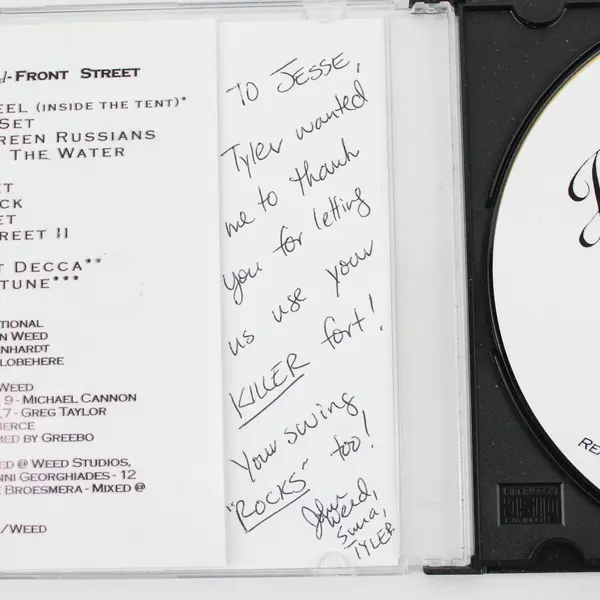 -FRONT STREET
EEL (INSIDE THE TENT)*
SET
REEN RUSSIANS
THE WATER
ET
CK
ET
REET II
T DECCA**
TUNE***
TIONAL
N WEED
NHARDT
LOBEHERE
WEED
, 9 - MICHAEL CANNON
,7 - GREG TAYLOR
IERCE
MED BY GREEBO
ED @ WEED STUDIOS,
NNI GEORGHIADES - 12
E BROESMERA - MIXED @
/WEED
TO JESSE,
Tyler wanted
me to thank
you for letting
us use your
KILLER fort!
Your swing
"ROCKS" too!
John
Weed,
Suna,
TYLER
RE